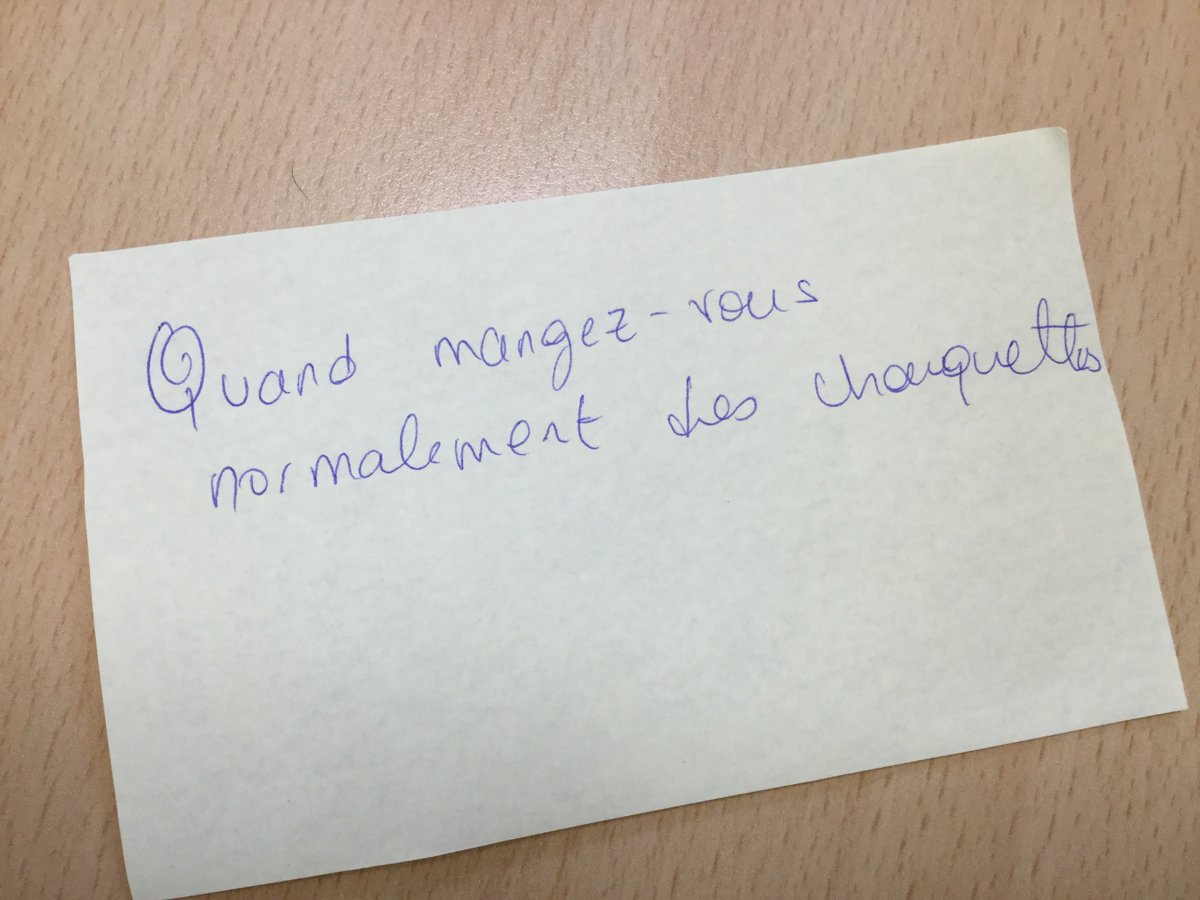 Quand mangez-vous
normalement des chouquettes